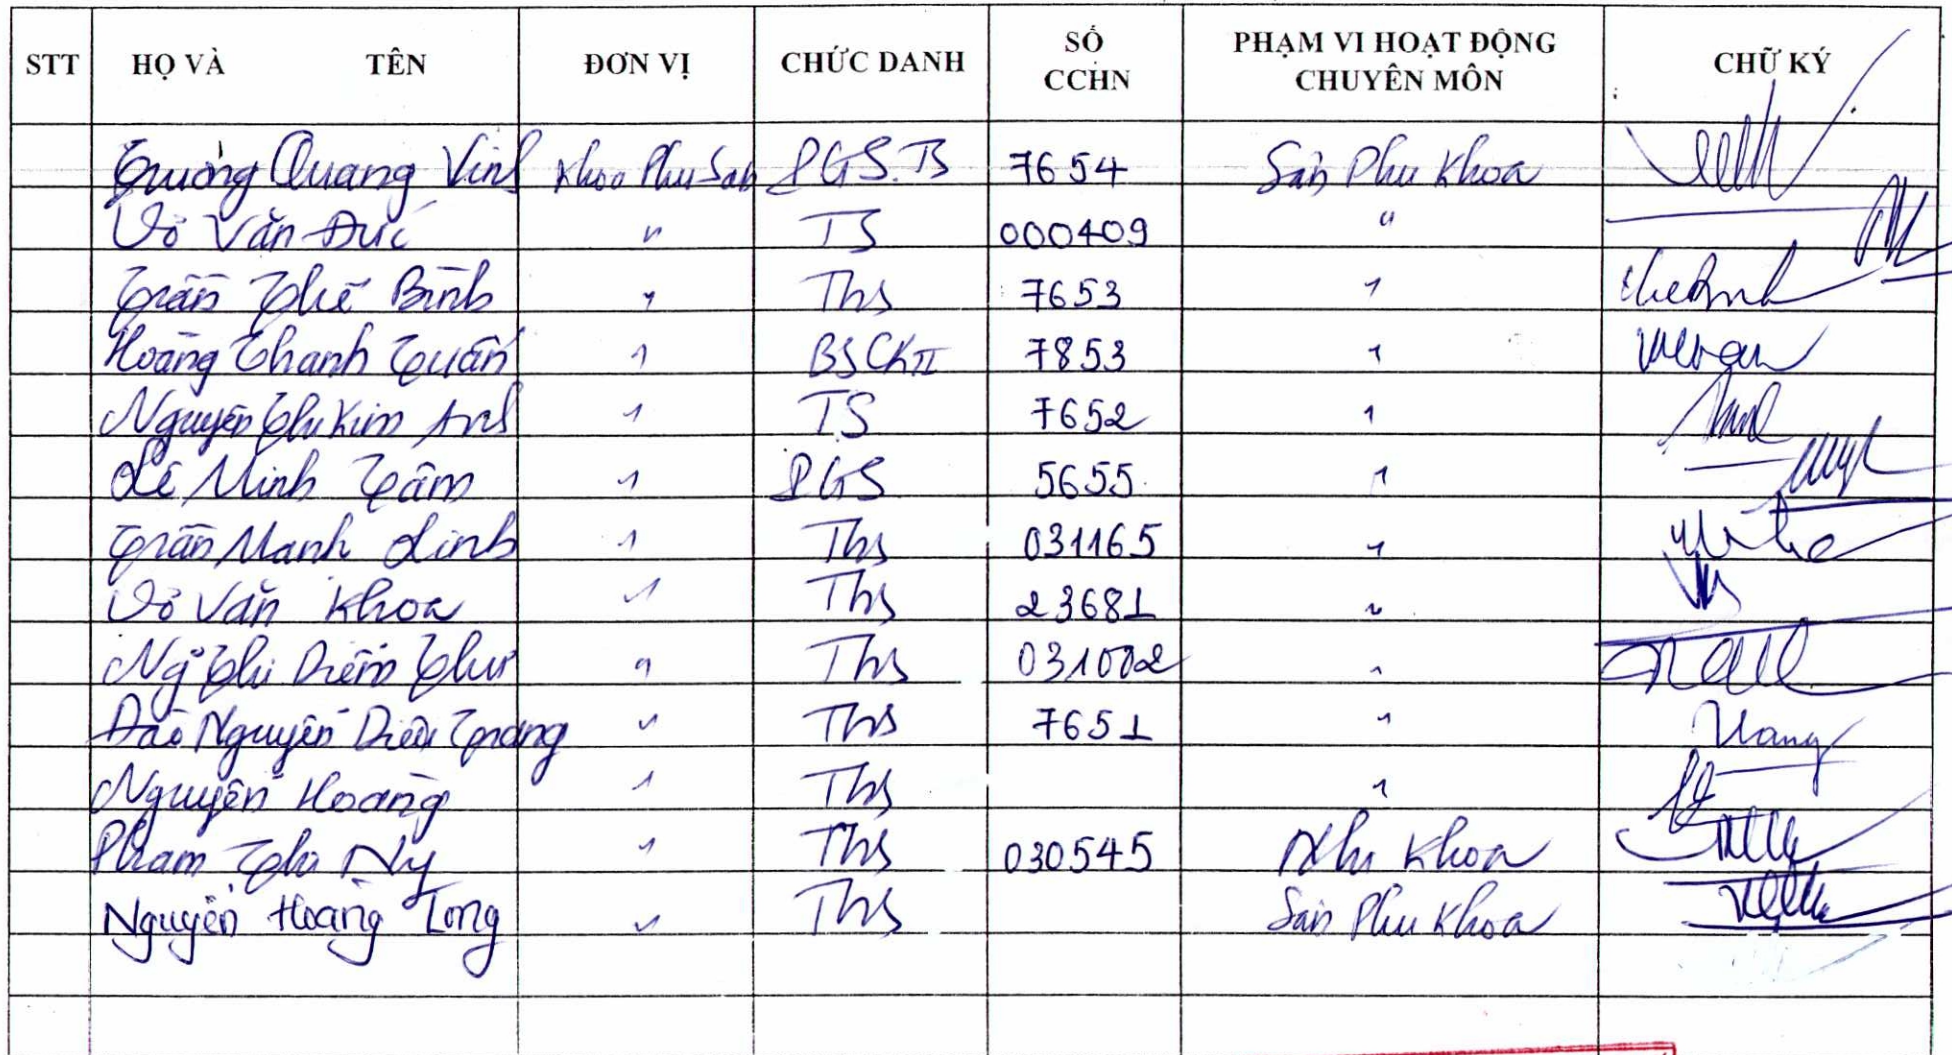 STT HỌ VÀ TÊN ĐƠN VỊ CHỨC DANH SỐ CCHN PHẠM VI HOẠT ĐỘNG CHUYÊN MÔN CHỮ KÝ
Trương Quang Vinh Khoa Phụ Sản PGS.TS 7654 Sản Phụ Khoa
Võ Văn Đức " TS 000409 "
Trần Thế Bình " Ths 7653 "
Hoàng Thanh Tuấn " BSCKII 7853 "
Nguyễn Thị Kim Anh " TS 7652 "
Lê Minh Tâm " PGS 5655 "
Trần Mạnh Linh " Ths 031165 "
Võ Văn Khoa " Ths 23681 "
Ng Thị Diễm Thư " Ths "
Đào Nguyễn Diệu Trang " Ths 7651 " Trang
Nguyễn Hoàng " Ths "
Phạm Thị Ny " Ths 030545 Nhi Khoa
Nguyễn Hoàng Long " Ths Sản Phụ Khoa